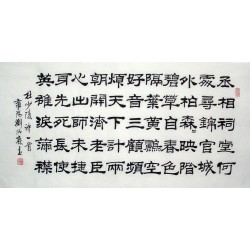 丞相祠堂何
處尋錦官城
外柏森森映階
碧草自春色
隔葉黃鸝空
好音三顧頻
煩天下計兩
朝開濟老臣
心出師未捷
身先死長使
英雄淚滿襟
杜少陵詩一首
劉炳森書